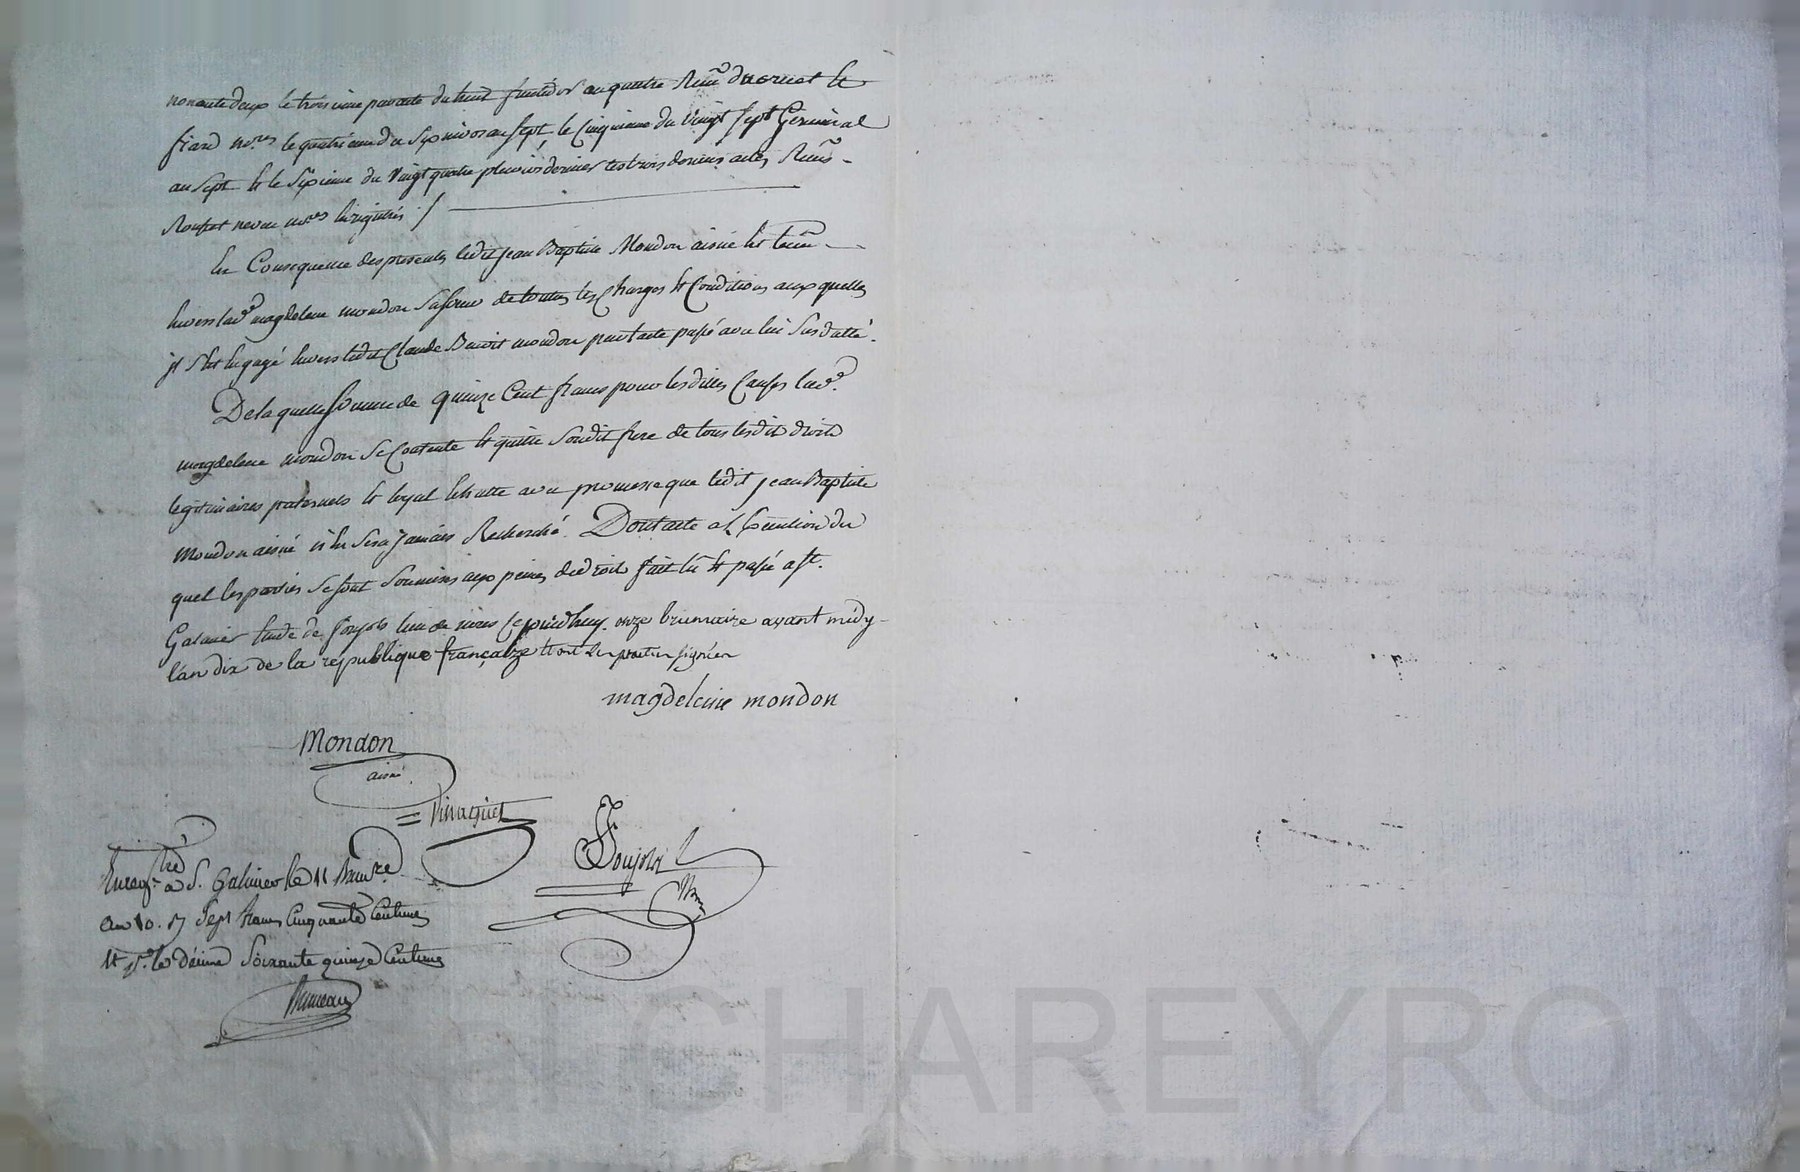 nonante deux le troisieme par acte du huit fructidor an quatre Reçu Ducruet et
fiard nres le quatrieme du six nivos an sept, le Cinquieme du Vingt sept Germinal
an sept et le Sixieme du Vingt quatre pluvios dernier les trois derniers actes Reçus
neveu nres Enrégistrés /
En Consequence des presentes ledit jean Baptiste Mondon aisné est tenu
Envers lade magdeleine mondon sa soeur de toutes les Charges et Conditions aux quelles
jl s'est Engagé Envers ledit Claude Benoit mondon par l'acte passé avec lui susdatté.
De laquelle somme de quinze Cent francs pour les dittes Causes lade
magdeleine mondon se Contente et quitte sondit frere de tous lesdits droits
legitimaires paternels et avec promesse que ledit jean Baptiste
Mondon aisné n'en sera jamais Recherché. Dont acte a l'Execution du
quel les parties se sont soumises aux peines de droit fait lû et passé a St.
Galmier Etude de Soujols l'un de nres Cejourd'huy onze brumaire avant midy
l'an dix de la republique françaize Et ont les parties signées
magdeleine mondon
Mondon
aisné
Soujols
Nre
Enregtré à S. Galmier le 11 brumre
an 10. R/ Sept francs Cinquante Centimes
et pr le décime Soixante quinze Centimes
CHAREYRON